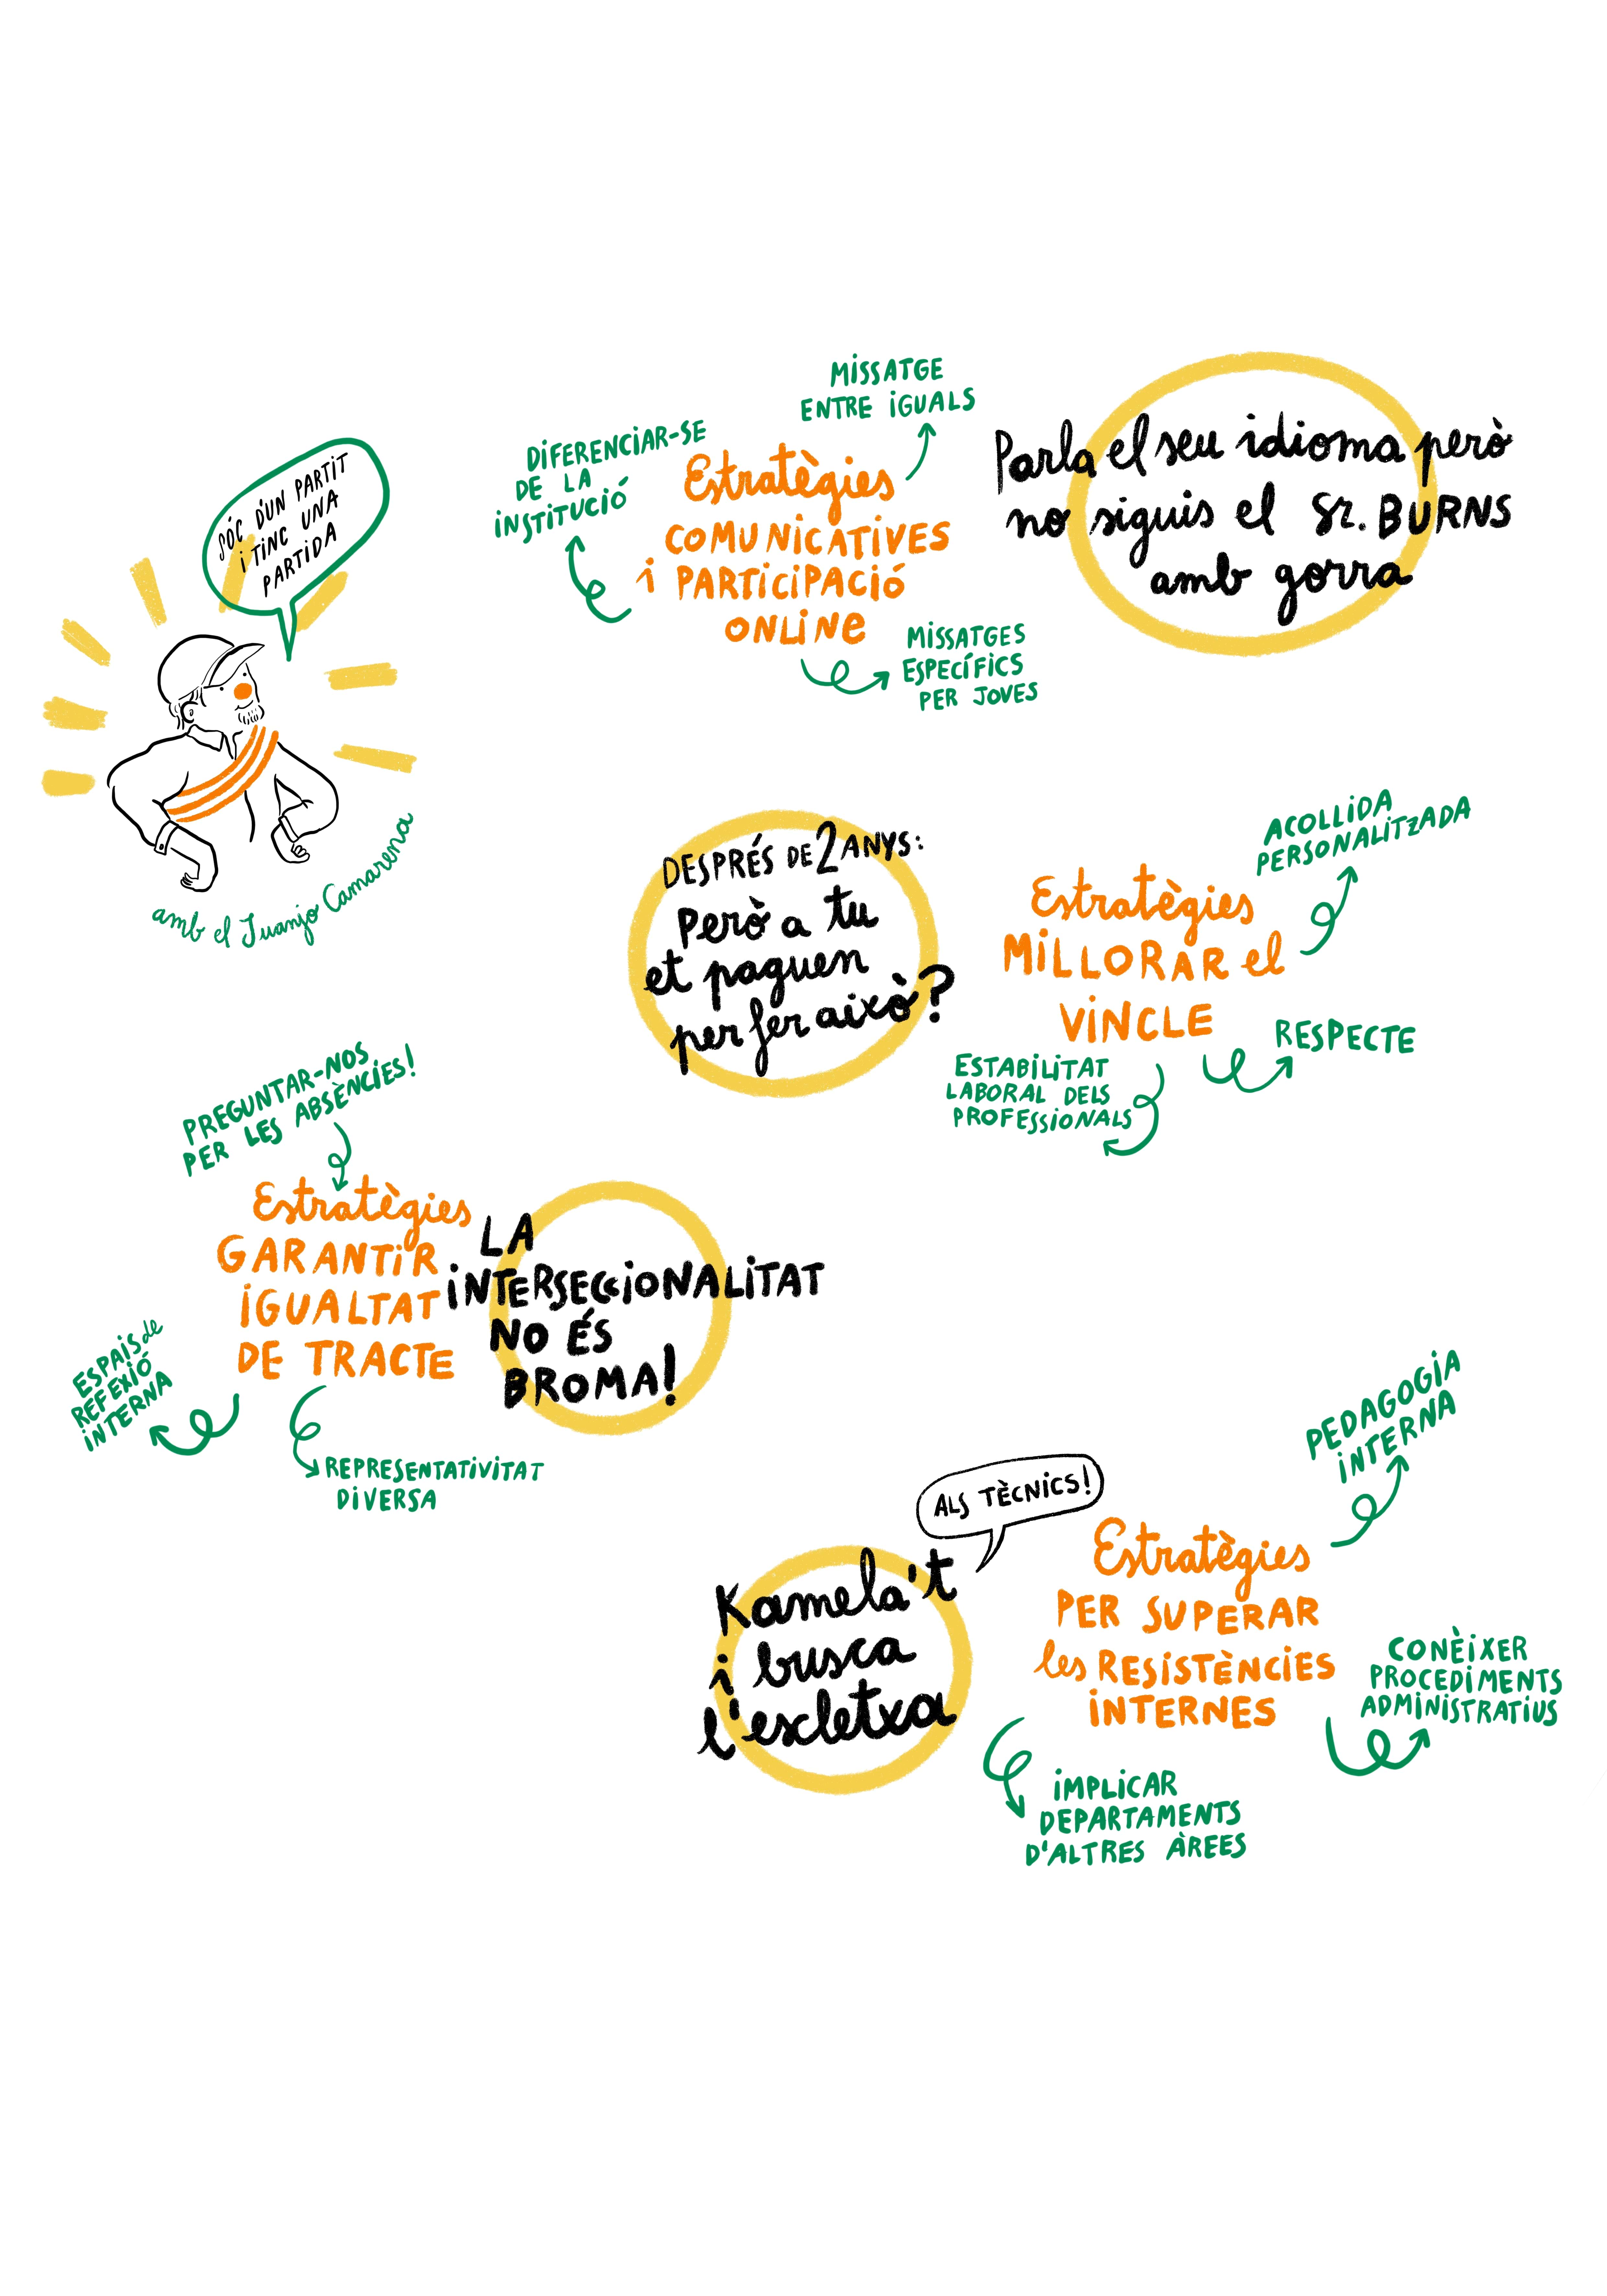 SÓC D'UN PARTIT
i TINC UNA
PARTIDA
amb el Juanjo Camarena
DIFERENCIAR-SE
DE LA
INSTITUCIÓ
MISSATGE
ENTRE IGUALS
Estratègies
COMUNICATIVES
i PARTICIPACIÓ
ONLINE
MISSATGES
ESPECÍFICS
PER JOVES
Parla el seu idioma però
no siguis el Sr. BURNS
amb gorra
DESPRÉS DE 2 ANYS:
Però a tu
et paguen
per fer això?
ACOLLIDA
PERSONALITZADA
Estratègies
MILLORAR el
VINCLE
RESPECTE
ESTABILITAT
LABORAL DELS
PROFESSIONALS
PREGUNTAR-NOS
PER LES ABSÈNCIES!
Estratègies
GARANTIR
IGUALTAT
DE TRACTE
ESPAIS de
REFEXIÓ
INTERNA
REPRESENTATIVITAT
DIVERSA
LA
INTERSECCIONALITAT
NO ÉS
BROMA!
ALS TÈCNICS!
Kamela't
i busca
l'escletxa
PEDAGOGIA
INTERNA
Estratègies
PER SUPERAR
les RESISTÈNCIES
INTERNES
CONÈIXER
PROCEDIMENTS
ADMINISTRATIUS
IMPLICAR
DEPARTAMENTS
D'ALTRES ÀREES